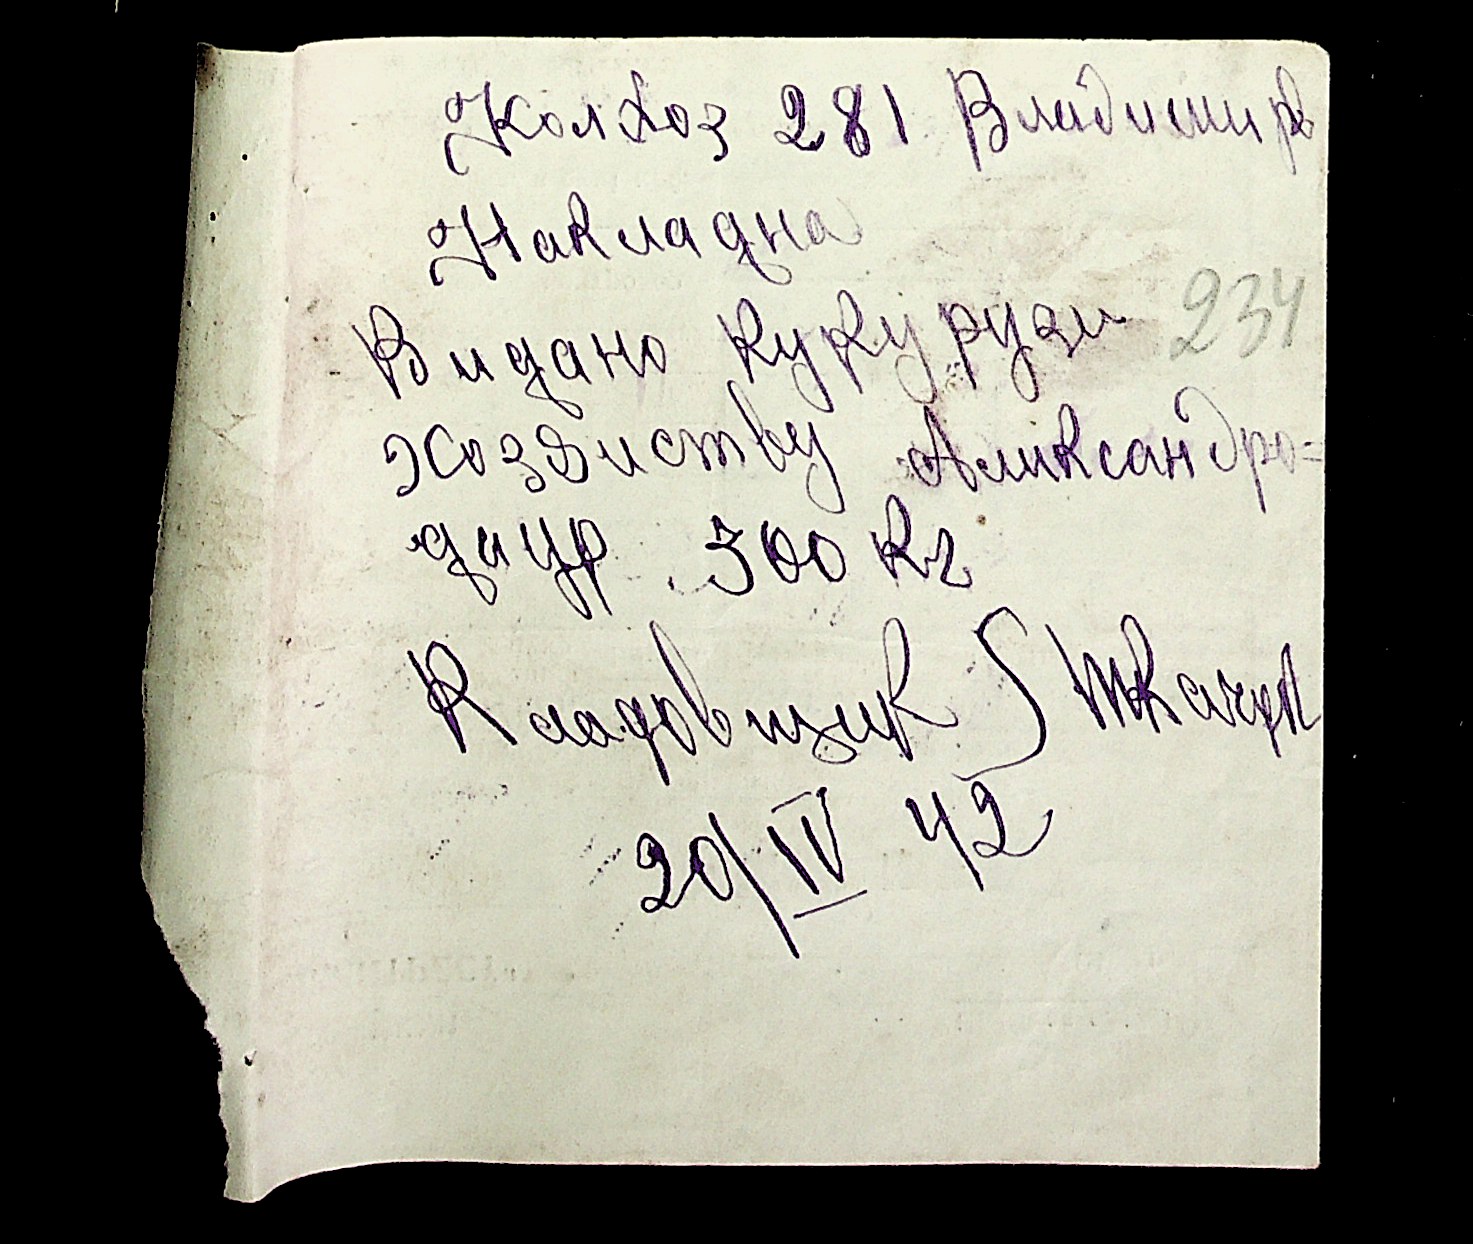 Колхоз 281 Владимир
Накладна
Видано кукурузи
234
хозяиству Аликсандро=
даур 300 кг
Кладовщик Ткачук
20/IV 42